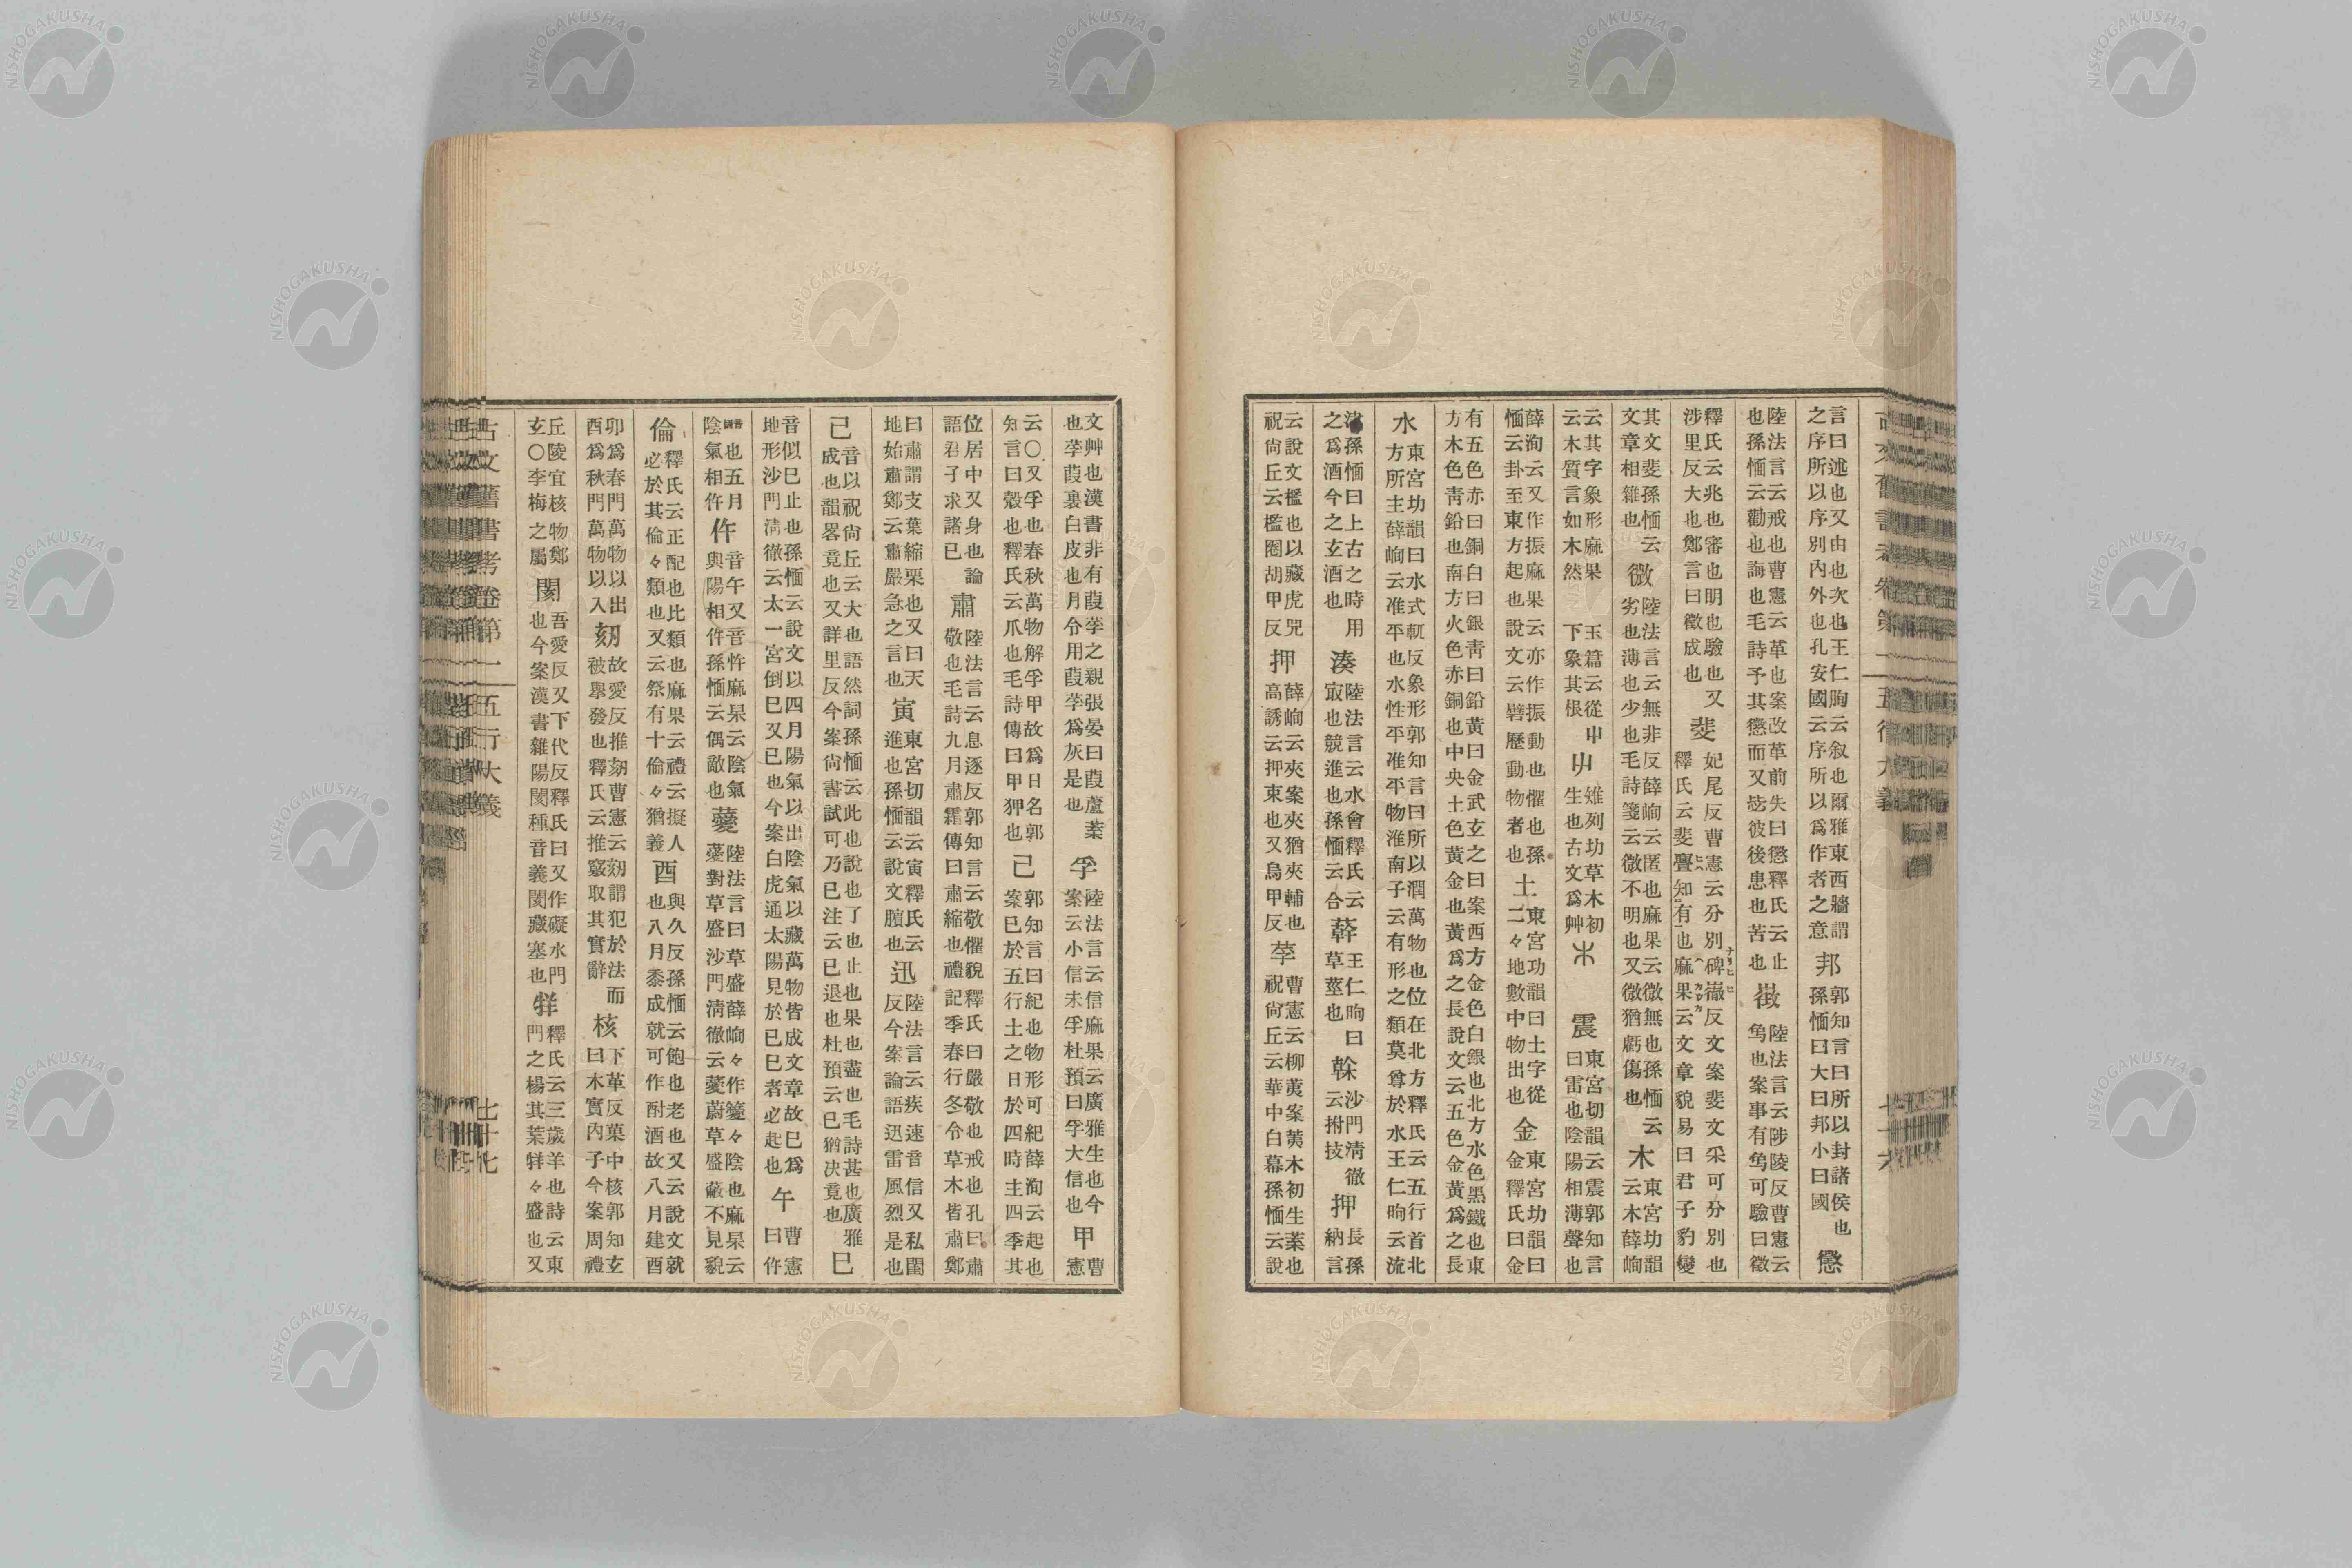 言曰述也又由也次也王仁煦云叙也爾雅東西牆謂之序所以序別內外也孔安國云序所以爲作者之意邦郭知言曰所以封諸侯也孫愐曰大曰邦小曰國懲
陸法言云戒也曹憲云革也案改革前失曰懲釋氏云止也孫愐云勸也誨也毛詩予其懲而又毖彼後患也苦也徴陸法言云陟陵反曹憲云也案事有可驗曰徵
釋氏云兆也審也明也驗也又涉里反大也鄭言曰徵成也斐妃尾反曹憲云分別碑反文案斐文采可分別也釋氏云斐亹知有也麻果云文章貌易曰君子豹變
其文斐孫愐云文章相雜也微陸法言云無非反薛峋云匿也麻果云微無也孫愐云劣也薄也少也毛詩箋云微不明也又微猶虧傷也木東宮功韻云木薛峋
云其字象形麻杲云木質言如木然玉篇云從屮下象其根㞢雉列功草木初生也古文爲艸朩震東宮切韻云震郭知言曰雷也陰陽相薄聲也
薛洵云又作振麻果云亦作振動也懼也孫愐云卦至東方起也說文云礕歷動物者也土東宮功韻曰土字從二々地數中物出也金東宮功韻曰金釋氏曰金
有五色赤曰銅白曰銀靑曰鉛黃曰金武玄之曰案西方金色白銀也北方水色黑鐵也東方木色靑鉛也南方火色赤銅也中央土色黃金也黃爲之長說文云五色金黃爲之長
水東宮功韻曰水式軏反象形郭知言曰所以潤萬物也位在北方釋氏云五行首北方所主薛峋云准平也水性平准平物淮南子云有形之類莫尊於水王仁昫云流
孫愐曰上古之時用之爲酒今之玄酒也湊陸法言云水會釋氏云㝡也競進也孫愐云合蘚王仁昫曰草莖也榦沙門淸徹云拊技押長孫納言
云說文檻也以藏虎兕祝尙丘云檻圈胡甲反押薛峋云夾案夾猶夾輔也高誘云押束也又烏甲反莩曹憲云柳荑案荑木初生葉也祝尙丘云華中白幕孫愐云說
文艸也漢書非有葭莩之親張晏曰葭蘆葉也莩葭裏白皮也月令用葭莩爲灰是也孚陸法言云信麻果云廣雅生也今案云小信未孚杜預曰孚大信也甲曹憲
云〇又孚也春秋萬物解孚甲故爲日名郭知言曰殼也釋氏云爪也毛詩傳曰甲狎也己郭知言曰紀也物形可紀薛洵云起也案巳於五行土之日於四時主四季其
位居中又身也論語君子求諸已肅陸法言云息逐反郭知言云敬懼貌釋氏曰嚴敬也戒也孔曰肅敬也毛詩九月肅霜傳曰肅縮也禮記季春行冬令草木皆肅鄭
曰肅謂支葉縮栗也又曰天地始肅鄭云肅嚴急之言也寅東宮切韻云寅釋氏云進也孫愐云說文臏也迅陸法言云疾速音信又私閏反今案論語迅雷風烈是也
己音以祝尙丘云大也語然詞孫愐云此也說也了也止也果也盡也毛詩甚也廣雅成也韻畧竟也又詳里反今案尙書試可乃已注云已退也杜預云已猶決竟也巳
音似巳止也孫愐云說文以四月陽氣以出陰氣以藏萬物皆成文章故巳爲地形沙門淸徹云太一宮倒巳又已也今案白虎通太陽見於巳巳者必起也午曹憲曰仵
也五月陰氣相仵仵音午又音忤麻杲云陰氣與陽相仵孫愐云偶敵也薆陸法言曰草盛薛峋々作籆々陰也麻杲云薆對草盛沙門淸徹云薆蔚草盛蔽不見貌
倫釋氏云正配也比類也麻果云禮云擬人必於其倫々類也又云祭有十倫々猶義酉與久反孫愐云飽也老也又云說文就也八月黍成就可作酎酒故八月建酉
卯爲春門萬物以出酉爲秋門萬物以入刻故愛反推刻曹憲云刻謂犯於法而被擧發也釋氏云推竅取其實辭核下革反菓中核郭知玄曰木實內子今案周禮
丘陵宜核物鄭玄〇李梅之屬閡吾愛反又下代反釋氏曰又作礙水門也今案漢書雜陽閡種音義閡藏塞也牂釋氏云三歲羊也詩云東門之楊其葉牂々盛也又
古文舊書考卷第一 五行大義 七十七